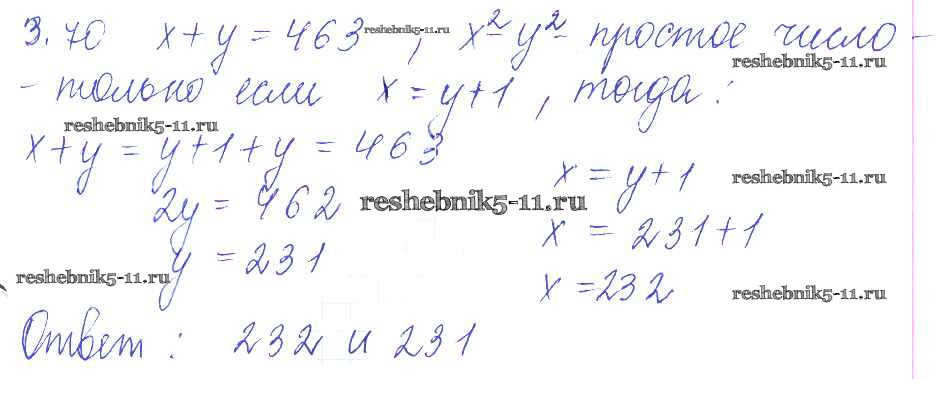 3.70 x + y = 463 reshebnik5-11.ru , x² y² простое число -
reshebnik5-11.ru
- только если x = y+1 , тогда:
reshebnik5-11.ru
x+y = y+1+y = 463
x = y+1 reshebnik5-11.ru
2y = 462 reshebnik5-11.ru
x = 231+1
y = 231
reshebnik5-11.ru
x = 232 reshebnik5-11.ru
Ответ : 232 и 231